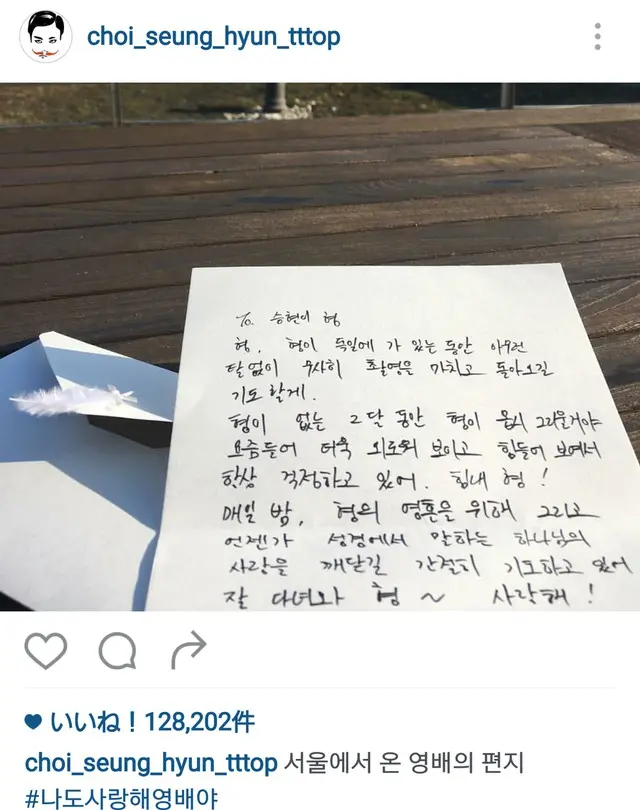 choi_seung_hyun_tttop
To. 승현이 형
형, 형이 독일에 가 있는 동안 아무런
탈 없이 무사히 촬영을 마치고 돌아오길
기도 할게.
형이 없는 2달 동안 형이 몹시 그리울거야
요즘들어 더욱 외로워 보이고 힘들어 보여서
항상 걱정하고 있어. 힘내 형!
매일 밤, 형의 영혼을 위해 그리고
언젠가 성경에서 말하는 하나님의
사랑을 깨닫길 간절히 기도하고 있어
잘 다녀와 형 ~ 사랑해!
いいね!128,202件
choi_seung_hyun_tttop 서울에서 온 영배의 편지
#나도사랑해영배야